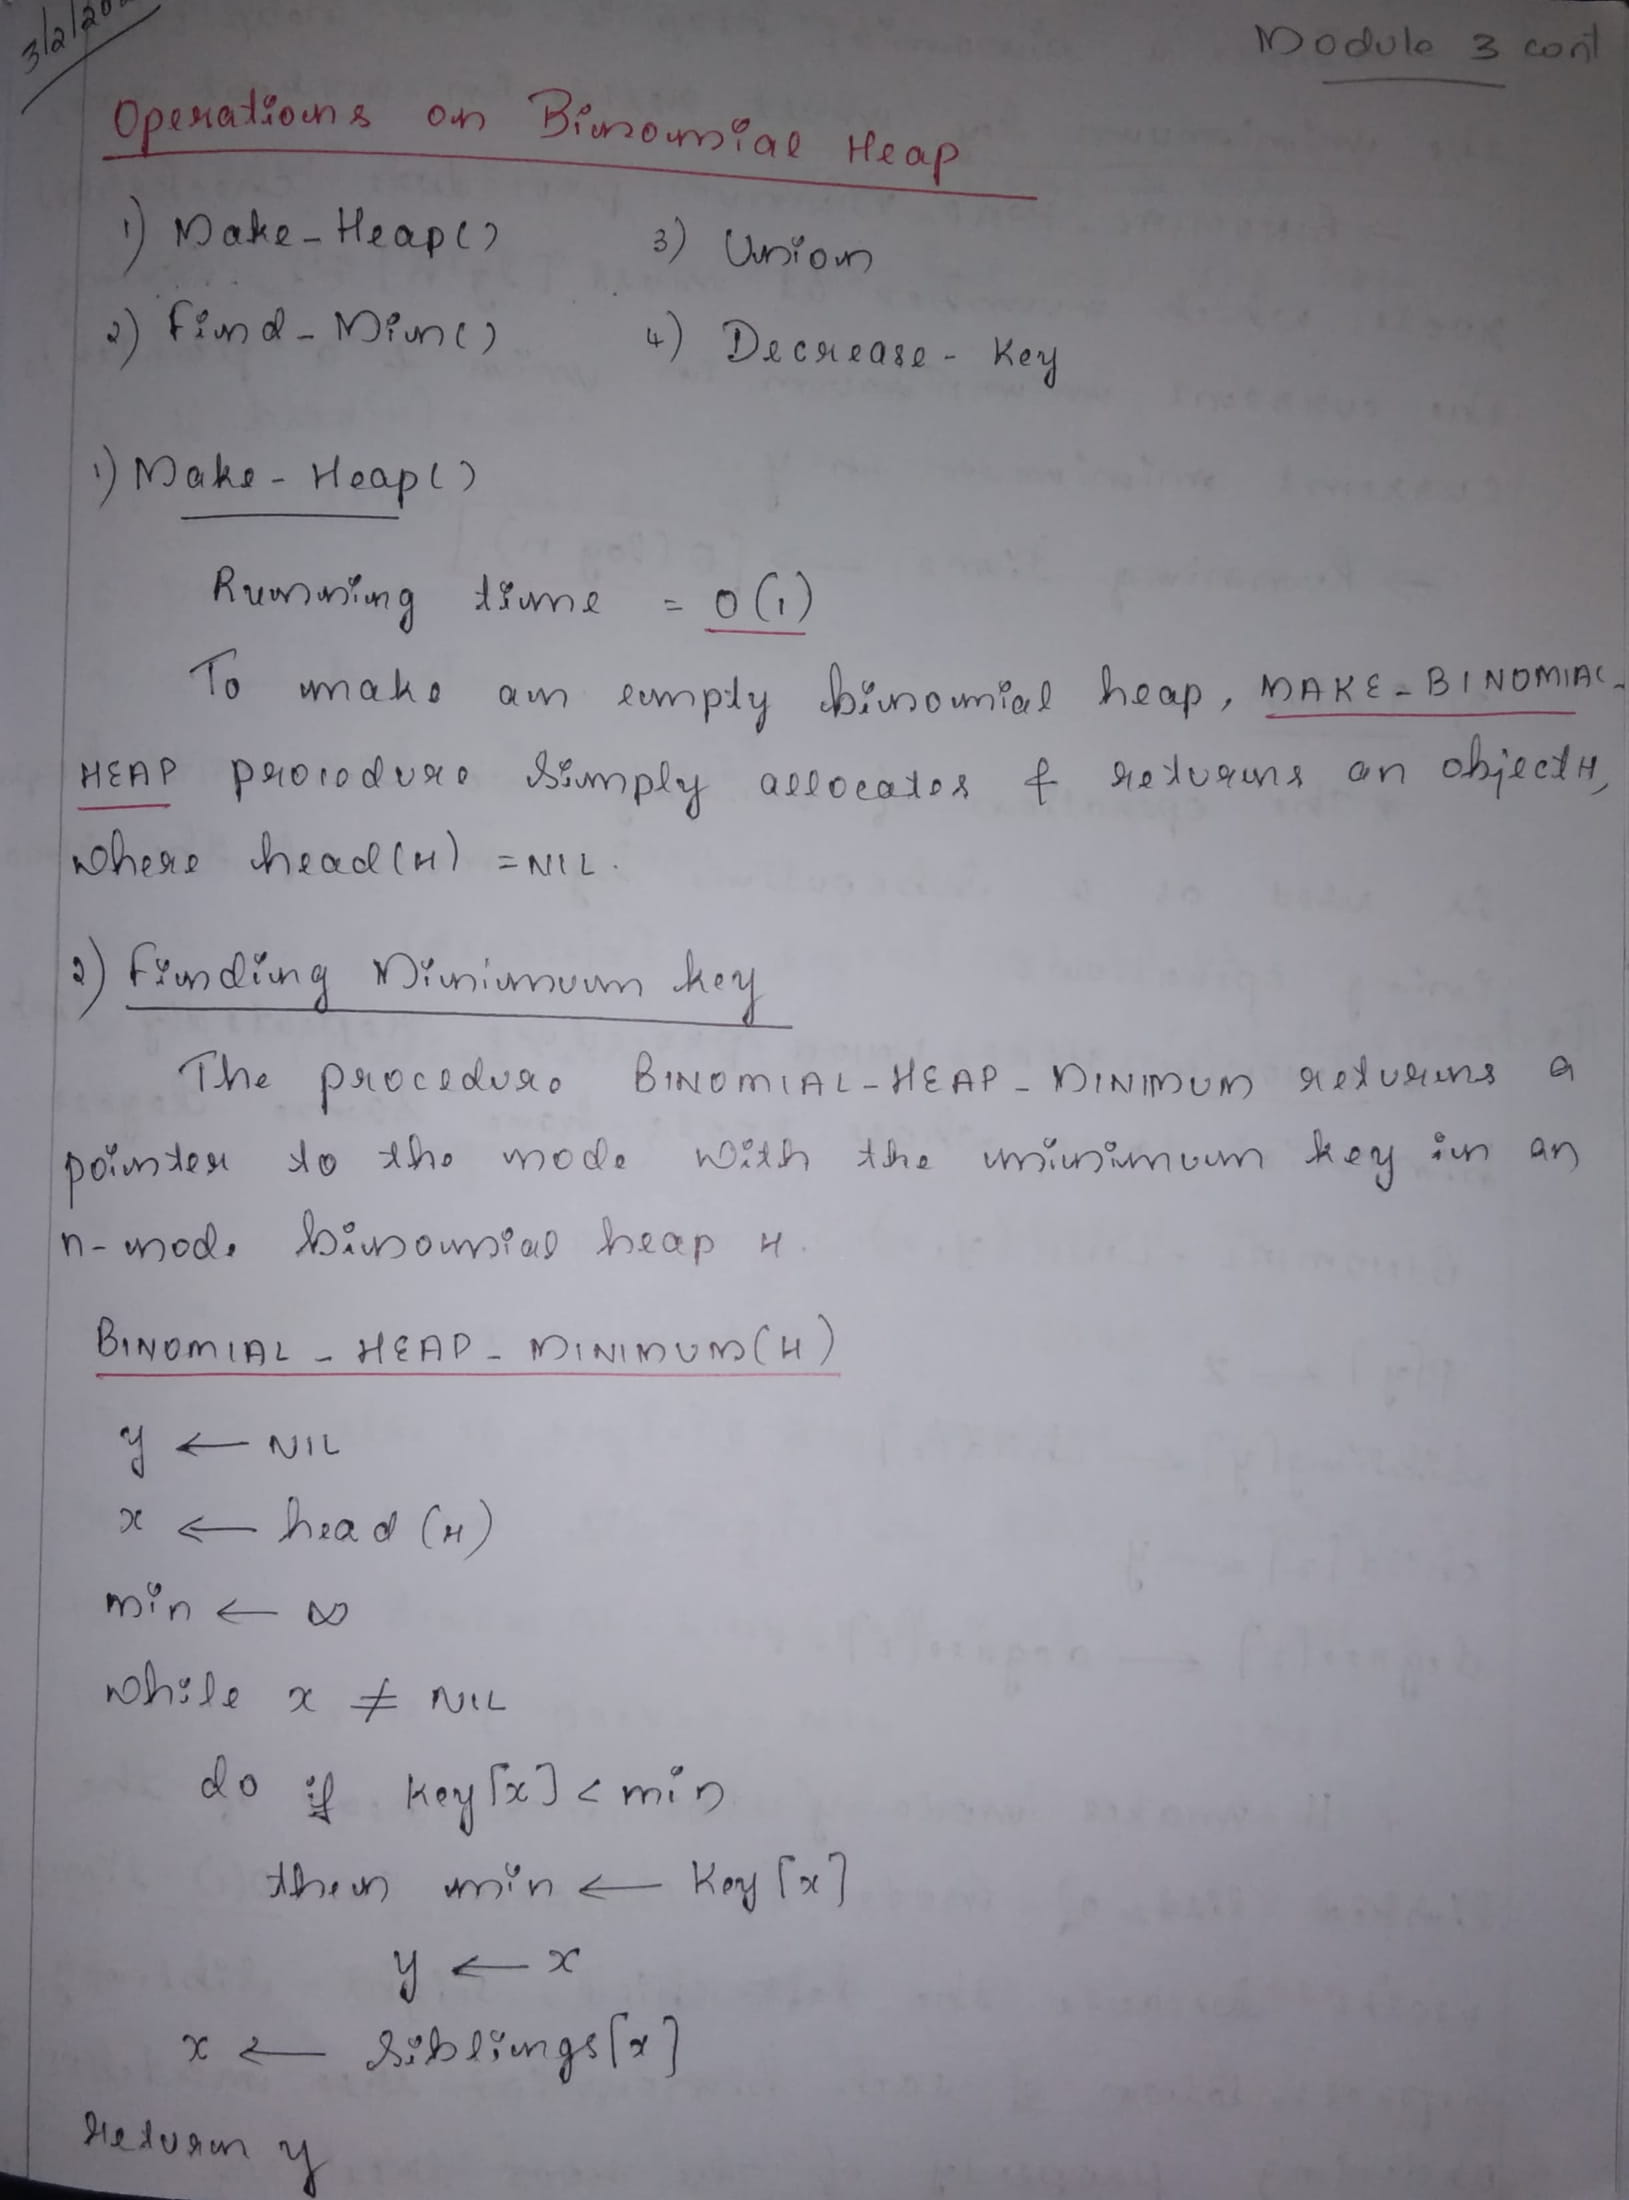 3/2/20
Module 3 cont
Operations on Binomial Heap
1) Make-Heap()
3) Union
2) Find-Min()
4) Decrease-Key
1) Make-Heap()
Running time = O(1)
To make an empty binomial heap, MAKE-BINOMIAL-
HEAP procedure simply allocates & returns an object H,
where head(H) = NIL.
2) Finding Minimum key
The procedure BINOMIAL-HEAP-MINIMUM returns a
pointer to the node with the minimum key in an
n-node binomial heap H.
BINOMIAL-HEAP-MINIMUM(H)
y ← NIL
x ← head(H)
min ← ∞
while x ≠ NIL
do if key[x] < min
then min ← key[x]
y ← x
x ← siblings[x]
return y